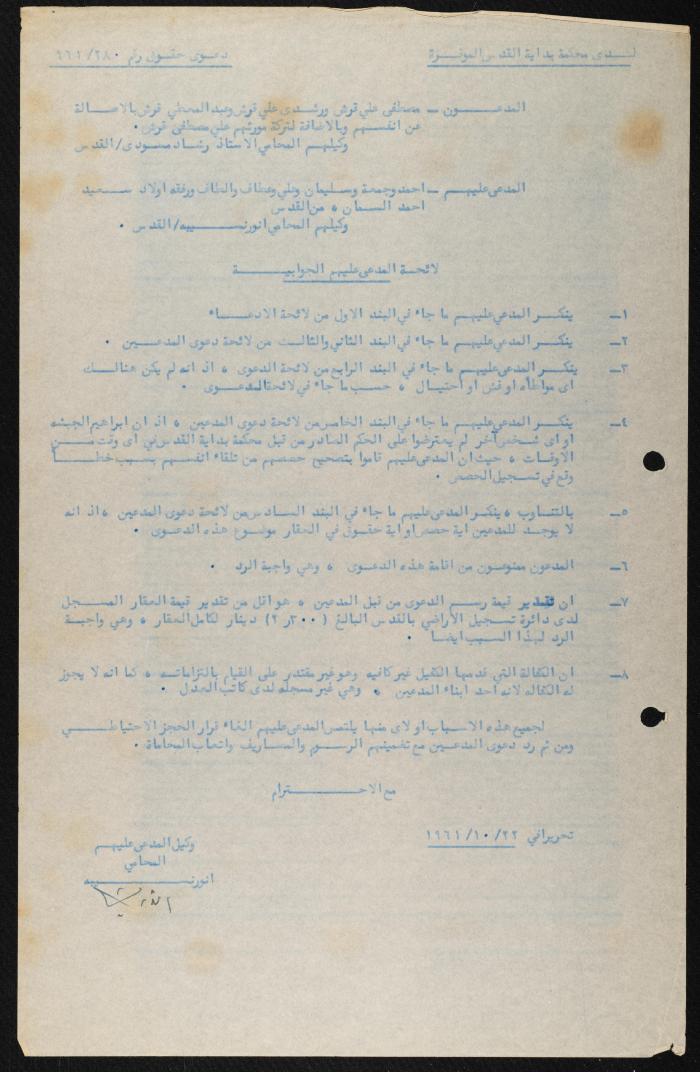 لـــدى محكمة بداية القدس الموقـرة
دعــوى حقــوق رقم ٩٦١/٢٨٠
المدعــــون ــ مصطفى علي قرش ورشــدي علي قرش وعبد المعطي قرش بالاصــالة
عن انفسـهم وبالاضافة لتركة مورثهم علي مصطفى قرش .
وكيلهـم المحامي الاستاذ رشـاد مسـودى/ القدس
المدعى عليهـم ــ احمد وجمعة وسـليمان وعلي وعطاف والطاف ورفقه اولاد ســعيد
احمد السـمان ، من القدس
وكيلهـم المحامي انور نســـيبه/ القدس .
لائحـة المدعى عليهم الجوابيـــــة
١ــ ينكــر المدعي عليهــم ما جاء في البند الاول من لائحة الادعـــاء
٢ــ ينكــر المدعى عليهـم ما جاء في البند الثاني والثالـث من لائحة دعوى المدعــين .
٣ــ ينكـر المدعى عليهـم ما جاء في البند الرابع من لائحة الدعوى ، اذ انه لم يكن هنالــك
اى مواطأه او غش او احتيـال ، حسب ما جاء في لائحة الدعــوى .
٤ــ ينكــر المدعى عليهـم ما جاء في البند الخامس من لائحة دعوى المدعين ، اذ ان ابراهيم
او اى شـخص آخر لم يعترضوا على الحكم الصادر من قبل محكمة بداية القدس في أى وقت مـــن
الاوقـات ، حيث ان المدعى عليهم قاموا بتصحيح حصصهم من تلقاء انفسـهم بسـبب خطــــأ
وقع في تسـجيل الحصص .
٥ــ بالتنـاوب ، ينكـر المدعى عليهم ما جاء في البند السـادس من لائحة دعوى المدعين ، اذ انه
لا يوجـد للمدعين اية حصص او اية حقـوق في العقار موضوع هذه الدعـوى .
٦ــ المدعون ممنوعـون من اقامة هذه الدعـوى ، وهي واجبة الرد .
٧ــ ان تقـدير قيمة رسـم الدعوى من قبل المدعين ، هو اقل من تقدير قيمة العقار المسـجل
لدى دائرة تسـجيل الأراضي بالقدس البالغ (٣٠٠ر٢) دينار لكامل العقار ، وهي واجبـة
الرد لهـذا السـبب ايضـا .
٨ــ ان الكفالة التي قدمها الكفيل غير كافيه وهو غير مقتدر على القيام بالتزاماتـه ، كما انه لا يجوز
له الكفاله لانه احد ابناء المدعين ، وهي غير مسجله لدى كاتب العدل .
لجميع هذه الاسـباب او لاى منها يلتمس المدعى عليهم الغاء قرار الحجز الاحتياطــي
ومن ثم رد دعوى المدعـين مع تضمينهم الرسـوم والمصـاريف واتعاب المحاماة .
مع الاحــــــترام
تحريرا في ١٩٦١/١٠/٢٢
وكيل المدعى عليهـم
المحامي
انور نـــسيبه